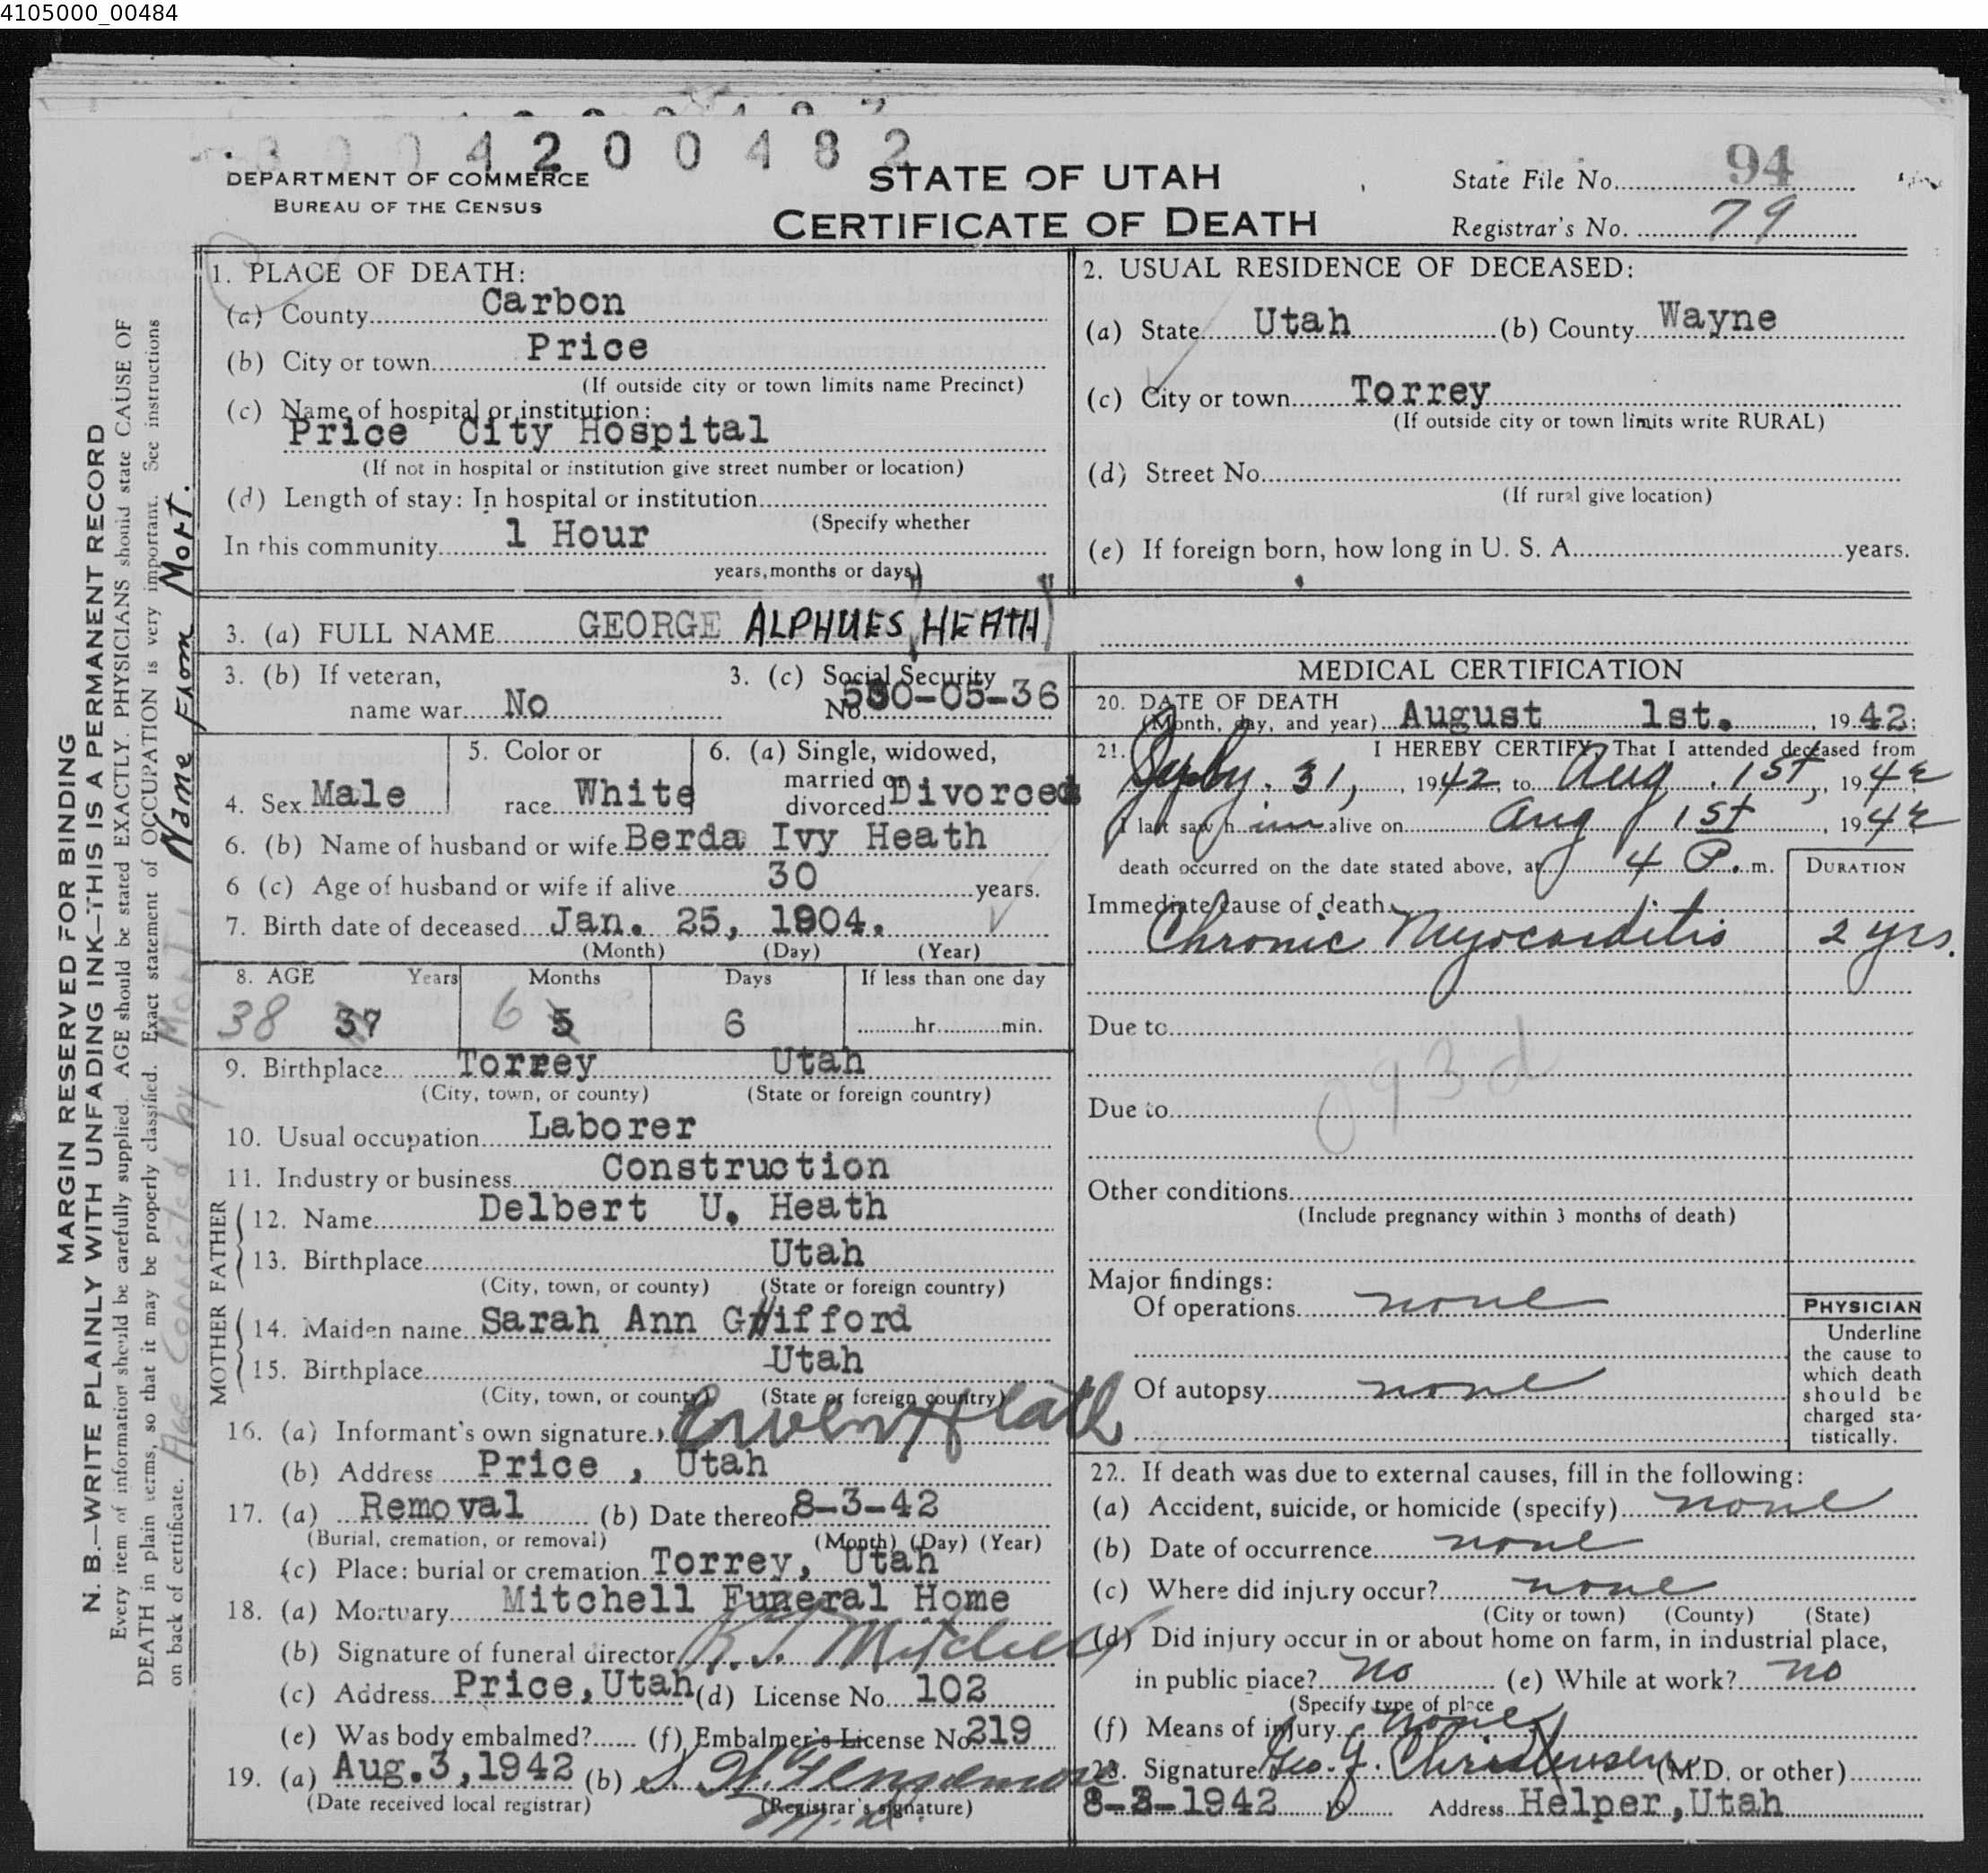 4105000_00484
4 2 0 0 4 8 2
DEPARTMENT OF COMMERCE
BUREAU OF THE CENSUS
STATE OF UTAH
CERTIFICATE OF DEATH
State File No. 94
Registrar's No. 79
MARGIN RESERVED FOR BINDING
N. B.—WRITE PLAINLY WITH UNFADING INK—THIS IS A PERMANENT RECORD
Every item of information should be carefully supplied. AGE should be stated EXACTLY. PHYSICIANS should state CAUSE OF
DEATH in plain terms, so that it may be properly classified. Exact statement of OCCUPATION is very important. See instructions
on back of certificate.
Age Corrected by Mort
Name From Mort.
1. PLACE OF DEATH:
(a) County Carbon
(b) City or town Price
(If outside city or town limits name Precinct)
(c) Name of hospital or institution:
Price City Hospital
(If not in hospital or institution give street number or location)
(d) Length of stay: In hospital or institution
(Specify whether
In this community 1 Hour
years, months or days)
2. USUAL RESIDENCE OF DECEASED:
(a) State Utah (b) County Wayne
(c) City or town Torrey
(If outside city or town limits write RURAL)
(d) Street No.
(If rural give location)
(e) If foreign born, how long in U. S. A. years.
3. (a) FULL NAME GEORGE ALPHUES HEATH
3. (b) If veteran,
name war No
3. (c) Social Security
No. -05-36
4. Sex Male
5. Color or
race White
6. (a) Single, widowed,
married or
divorced Divorced
6. (b) Name of husband or wife Berda Ivy Heath
6 (c) Age of husband or wife if alive 30 years.
7. Birth date of deceased Jan. 25, 1904.
(Month) (Day) (Year)
8. AGE Years Months Days If less than one day
38 37 6 5 6 hr. min.
9. Birthplace Torrey Utah
(City, town, or county) (State or foreign country)
10. Usual occupation Laborer
11. Industry or business Construction
FATHER
12. Name Delbert U. Heath
13. Birthplace Utah
(City, town, or county) (State or foreign country)
MOTHER
14. Maiden name Sarah Ann Gifford
15. Birthplace Utah
(City, town, or county) (State or foreign country)
16. (a) Informant's own signature Erwen Heath
(b) Address Price, Utah
17. (a) Removal (b) Date thereof 8-3-42
(Burial, cremation, or removal) (Month) (Day) (Year)
(c) Place: burial or cremation Torrey, Utah
18. (a) Mortuary Mitchell Funeral Home
(b) Signature of funeral director Mitchell
(c) Address Price, Utah (d) License No. 102
(e) Was body embalmed? (f) Embalmer's License No. 219
19. (a) Aug. 3, 1942 (b)
(Date received local registrar) (Registrar's signature)
MEDICAL CERTIFICATION
20. DATE OF DEATH
(Month, day, and year) August 1st., 1942;
21. I HEREBY CERTIFY, That I attended deceased from
31, 1942, to Aug. 1st, 1942
I last saw him alive on Aug 1st, 1942
death occurred on the date stated above, at 4 P. m.
DURATION
Immediate cause of death
Chronic Myocarditis 2 yrs.
Due to
093d
Due to
Other conditions
(Include pregnancy within 3 months of death)
Major findings:
Of operations none
Of autopsy none
PHYSICIAN
Underline
the cause to
which death
should be
charged sta-
tistically.
22. If death was due to external causes, fill in the following:
(a) Accident, suicide, or homicide (specify) none
(b) Date of occurrence none
(c) Where did injury occur? none
(City or town) (County) (State)
(d) Did injury occur in or about home on farm, in industrial place,
in public place? no (e) While at work? no
(Specify type of place
(f) Means of injury none
23. Signature Geo. J. Christensen (M.D. or other)
8-3-1942 19 Address Helper, Utah